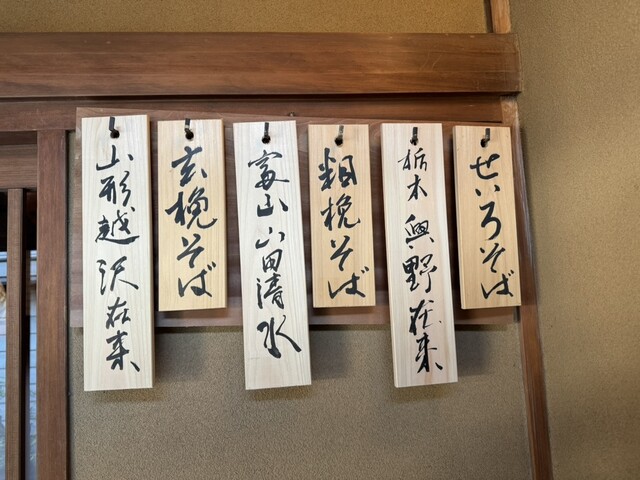 せいろそば
栃木 興野在来
粗挽そば
富山山田清水
玄挽そば
山形越沢在来